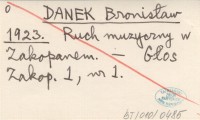 0
DANEK Bronisław
1923. Ruch muzyczny w
Zakopanem. — Głos
Zakop. 1, nr 1.
BT/010/0485